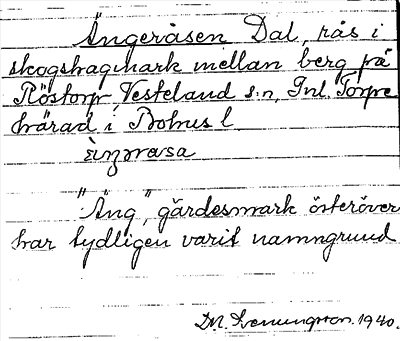 Ängeråsen Dal, rås i
skogshagmark mellan berg på
Röstorp Vesteland s:n, Inl. Torpe
härad i Bohus l.
"Äng", gärdesmark österöver
har tydligen varit namngrund
1940.